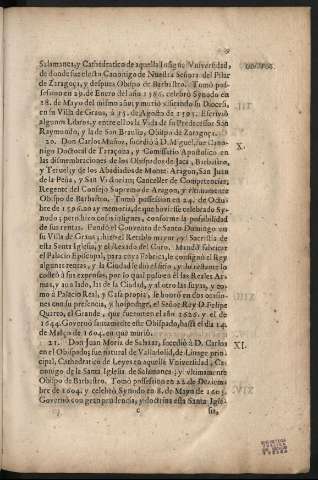 Salamanca, y Cathedratico de aquella Insigne Vniversidad,
de donde fue electo Canonigo de Nuestra Señora del Pilar
de Zaragoça, y despues Obispo de Barbastro. Tomò pos-
sessiono en 29. de Enero del año 1586. celebrò Synodo en
28. de Mayo del mismo año; y muriò visitando su Diocesi,
en su Villa de Graus, à 25. de Agosto de 1595. Escriviò
algunos Libros, y entre ellos la Vida de su Predecessor San
Raymundo, y la de San Braulio, Obispo de Zaragoça.
20. Don Carlos Muñoz, sucediò à D. Miguèl, fue Cano-
X.
nigo Doctoral de Tarazona, y Comissario Apostolico en
las dismembraciones de los Obispados de Jaca, Barbastro,
y Teruel, y de los Abadiados de Monte-Aragon, San Juan
de la Peña, y San Victorian; Canceller de Competencias,
Regente del Consejo Supremo de Aragon, y vltimamente
Obispo de Barbastro. Tomò possession en 24. de Octu-
bre de 1596. no ay memoria, de que huviesse celebrado Sy-
nodo; pero hizo cosas insignes, conforme la possibilidad
de sus rentas. Fundò el Convento de Santo Domingo en
su Villa de Graus, hizo el Retablo mayor, y Sacristia de
esta Santa Iglesia, y el Rexado del Coro. Mandò fabricar
el Palacio Episcopal, para cuya Fabrica, le consignò el Rey
algunas rentas, y la Ciudad le diò el sitio, y du
codeò à sus expensas, por lo qual puso en èl las Reales Ar-
mas, y à vn lado, las de la Ciudad, y al otro las suyas, y co-
mo à Palacio Real, y Casa propia, le honrò en dos ocasio-
nes con su presencia, y hospedage, el Señor Rey D. Felipe
Quarto, el Grande, que fueron en el año 1626. y el de
1644. Governò santamente este Obispado, hasta el dia 14.
de Março de 1604. en que muriò.
21. Don Juan Moriz de Salazar, sucediò à D. Carlos
XI.
en el Obispado; fue natural de Valladolid, de Linage prin-
cipal, Cathedratico de Leyes en aquella Vniversidad, Ca-
nonigo de la Santa Iglesia de Salamanca; y vltimamente
Obispo de Barbastro. Tomò possession en 22. de Deziem-
bre de 1604. y celebrò Synodo en 8. de Mayo de 1605.
Governò con gran prudencia, y doctrina esta Santa Igle-
C
sia,